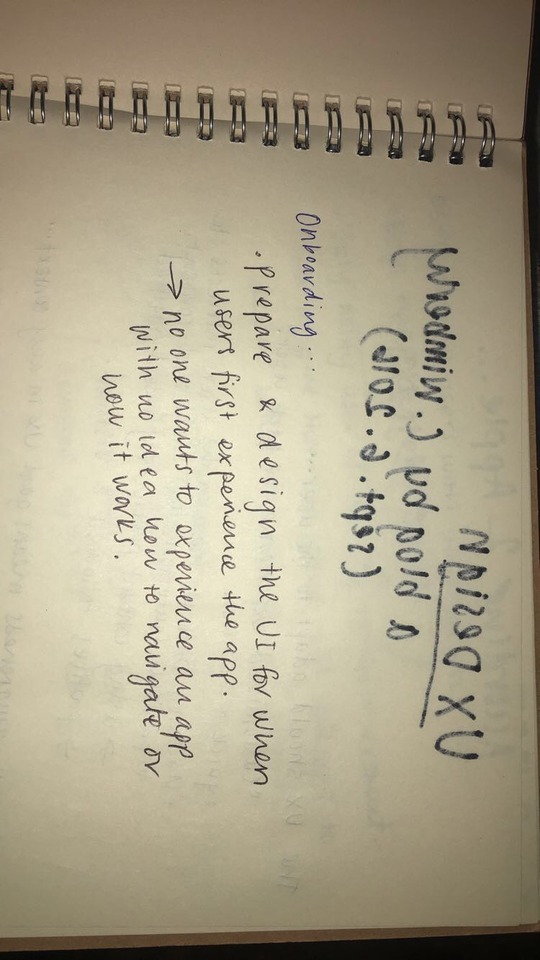 UX Design
a blog by C.
(sept. 2019)
Onboarding...
· prepare & design the UI for when
users first experience the app.
→ no one wants to experience an app
with no idea how to navigate or
how it works.